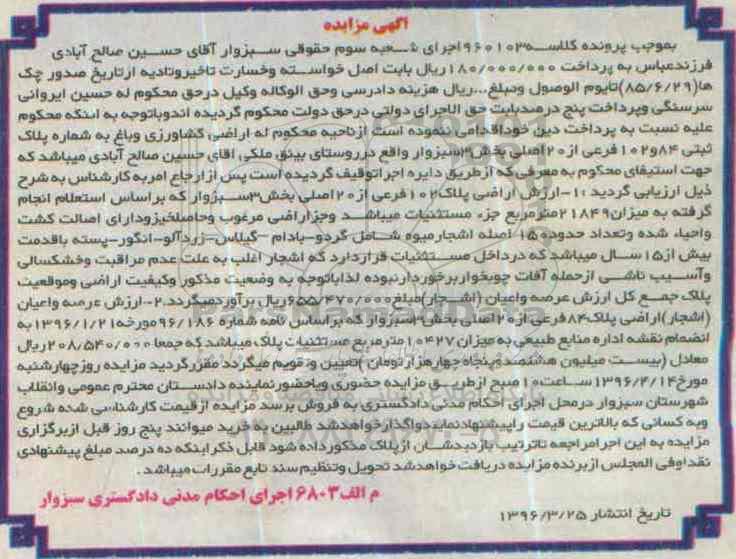 آگهی مزایده
بموجب پرونده کلاسه ۹۶۰۱۰۳ اجرای شعبه سوم حقوقی سبزوار آقای حسین صالح آبادی
فرزندعباس به پرداخت ۱۸۰/۰۰۰/۰۰۰ ریال بابت اصل خواسته وخسارت تاخیروتادیه ازتاریخ صدور چک
ها(۸۵/۶/۲۹)تایوم الوصول ومبلغ...ریال هزینه دادرسی وحق الوکاله وکیل درحق محکوم له حسین ایروانی
سرسنگی وپرداخت پنج درصدبابت حق الاجرای دولتی درحق دولت محکوم گردیده اندوباتوجه به اینکه محکوم
علیه نسبت به پرداخت دین خوداقدامی ننموده است ازناحیه محکوم له اراضی کشاورزی وباغ به شماره پلاک
ثبتی ۸۴و۱۰۲فرعی از۲۰اصلی بخش۳سبزوار واقع درروستای بیتق ملکی آقای حسین صالح آبادی میباشد که
جهت استیفای محکوم به معرفی که ازطریق دایره اجراتوقیف گردیده است پس ازارجاع امربه کارشناس به شرح
ذیل ارزیابی گردید :۱-ارزش اراضی پلاک۱۰۲فرعی از۲۰اصلی بخش۳سبزوار که براساس استعلام انجام
گرفته به میزان۲۱۸۴۹مترمربع جزء مستثنیات میباشد وجزاراضی مرغوب وحاصلخیزودارای اصالت کشت
واحیاء شده وتعداد حدود۱۵۰ اصله اشجارمیوه شامل گردو-بادام -گیلاس-زردآلو-انگور-پسته باقدمت
بیش از۱۵سال میباشد که درداخل مستثنیات قراردارد که اشجار اغلب به علت عدم مراقبت وخشکسالی
وآسیب ناشی ازحمله آفات چوبخواربرخوردارنبوده لذاباتوجه به وضعیت مذکور وکیفیت اراضی وموقعیت
پلاک جمع کل ارزش عرصه واعیان (اشجار)مبلغ۶۵۵/۴۷۰/۰۰۰ریال برآوردمیگردد.۲-ارزش عرصه واعیان
(اشجار)اراضی پلاک۸۴فرعی از۲۰اصلی بخش۳سبزوار که براساس نامه شماره ۹۶/۱۸۶مورخه۱۳۹۶/۱/۲۱به
انضمام نقشه اداره منابع طبیعی به میزان ۱۰۴۲۷مترمربع مستثنیات پلاک میباشد که جمعا۲۰۸/۵۴۰/۰۰۰ریال
معادل (بیست میلیون هشتصدوپنجاه چهارهزارتومان )تامین وتقویم میگردد مقررگردید مزایده روزچهارشنبه
مورخ۱۳۹۶/۴/۱۴ساعت۱۰صبح ازطریق مزایده حضوری وباحضورنماینده دادستان محترم عمومی وانقلاب
شهرستان سبزوار درمحل اجرای احکام مدنی دادگستری به فروش برسد مزایده ازقیمت کارشناسی شده شروع
وبه کسانی که بالاترین قیمت راپیشنهادنمایدواگذارخواهدشد طالبین به خرید میوانند پنج روز قبل ازبرگزاری
مزایده به این اجرامراجعه تاترتیب بازدیدشان ازپلاک مذکورداده شود قابل ذکراینکه ده درصد مبلغ پیشنهادی
نقداوفی المجلس ازبرنده مزایده دریافت خواهدشد تحویل وتنظیم سند تابع مقررات میباشد.
م الف۶۸۰۳ اجرای احکام مدنی دادگستری سبزوار
تاریخ انتشار ۱۳۹۶/۳/۲۵